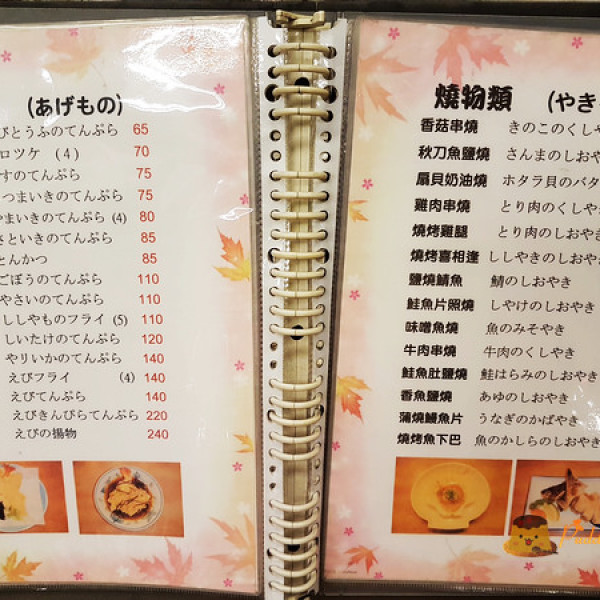 (あげもの)
びとうふのてんぷら 65
ロツケ (4) 70
すのてんぷら 75
つまいきのてんぷら 75
やまいきのてんぷら (4) 80
さといきのてんぷら 85
とんかつ 85
ごぼうのてんぷら 110
やさいのてんぷら 110
ししやものフライ (5) 110
しいたけのてんぷら 120
やりいかのてんぷら 140
えびフライ (4) 140
えびてんぷら 140
えびきんぴらてんぷら 220
えびの揚物 240
燒物類 (やき
香菇串燒 きのこのくしや
秋刀魚鹽燒 さんまのしおや
扇貝奶油燒 ホタラ貝のバタ
雞肉串燒 とり肉のくしや
燒烤雞腿 とり肉のしおや
燒烤喜相逢 ししやきのしおや
鹽燒鯖魚 鯖のしおやき
鮭魚片照燒 しやけのしおやき
味噌魚燒 魚のみそやき
牛肉串燒 牛肉のくしやき
鮭魚肚鹽燒 鮭はらみのしおやき
香魚鹽燒 あゆのしおやき
蒲燒鰻魚片 うなぎのかばやき
燒烤魚下巴 魚のかしらのしおやき